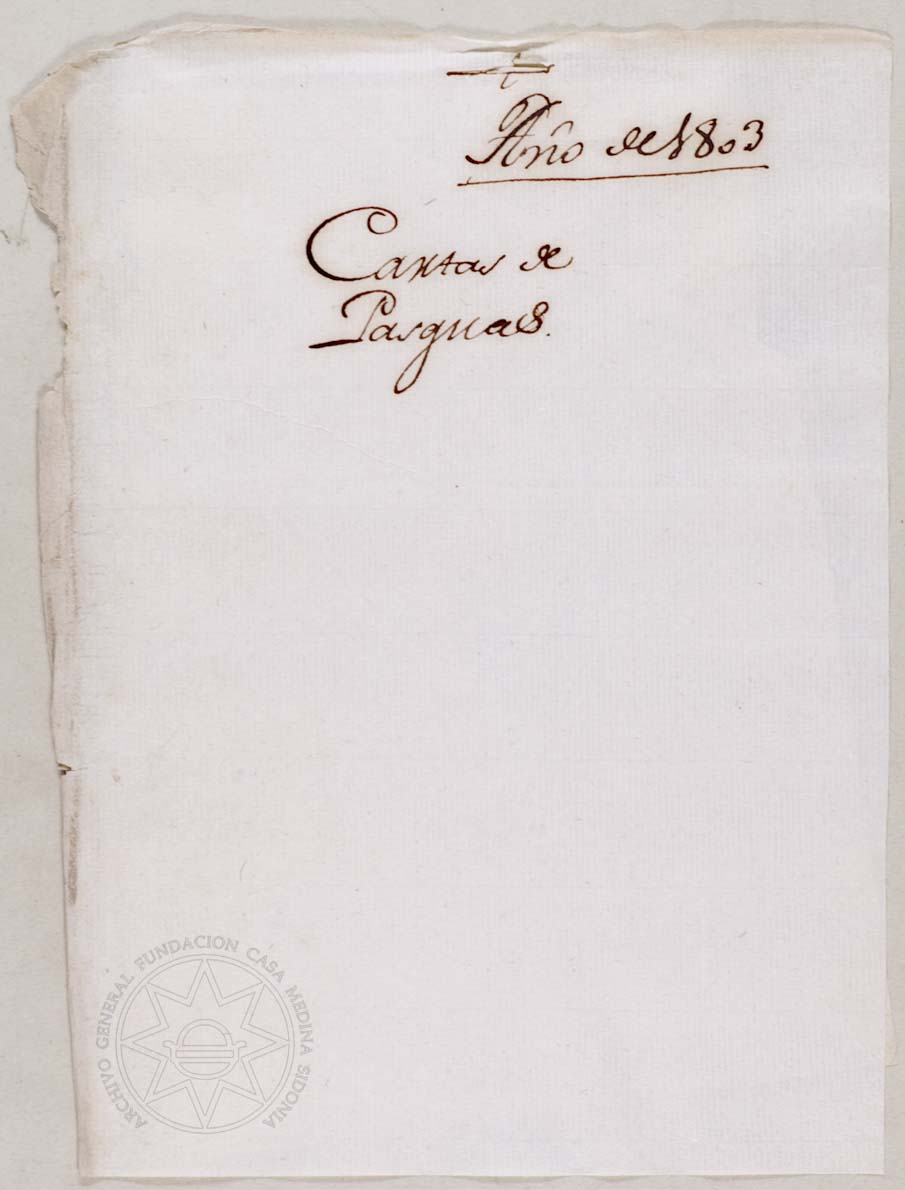 Año de 1803
Cartas de
Pasquas.
ARCHIVO GENERAL FUNDACION CASA MEDINA SIDONIA